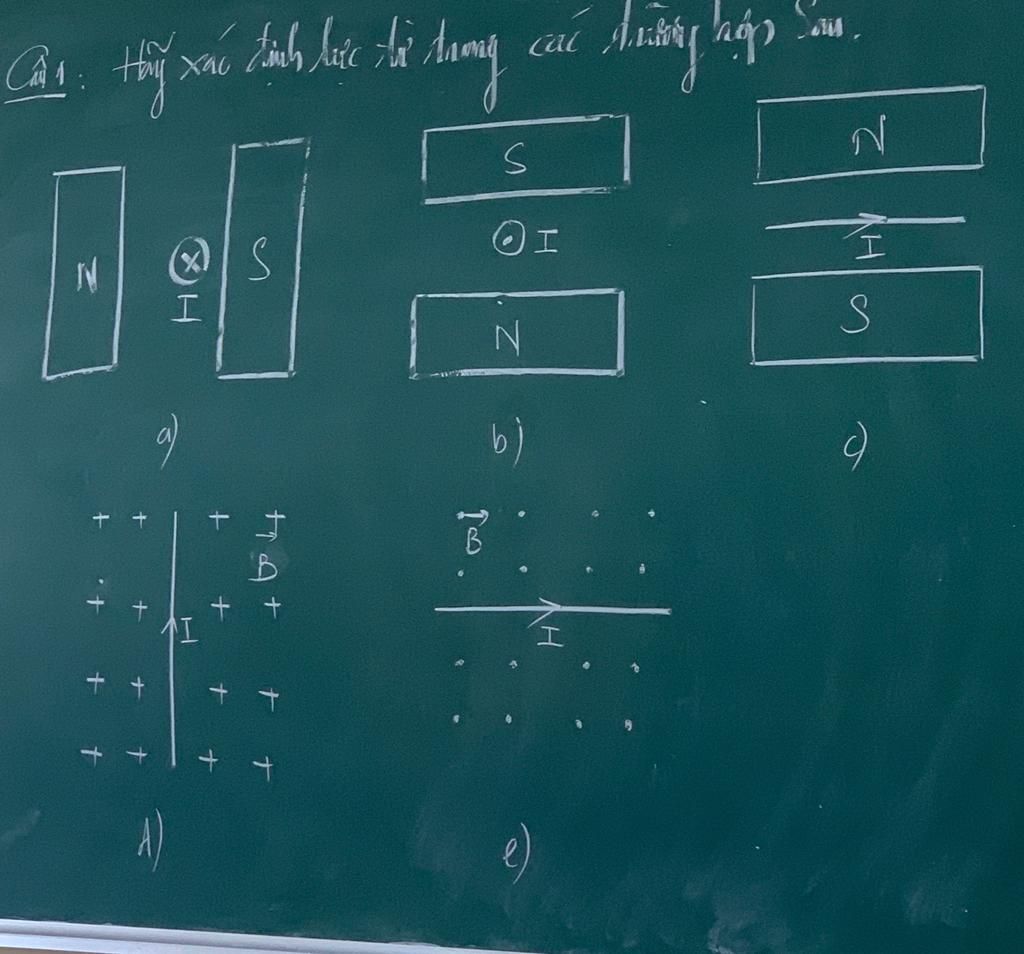 Câu 1: Hãy xác định lực từ trong các trường hợp sau.
S N
N ⊗ S ⊙ I I
I N S
a) b) c)
+ + + + B
B . . .
+ + + + . . . .
I I
+ + + + . . . .
+ + + + . . . .
d) e)